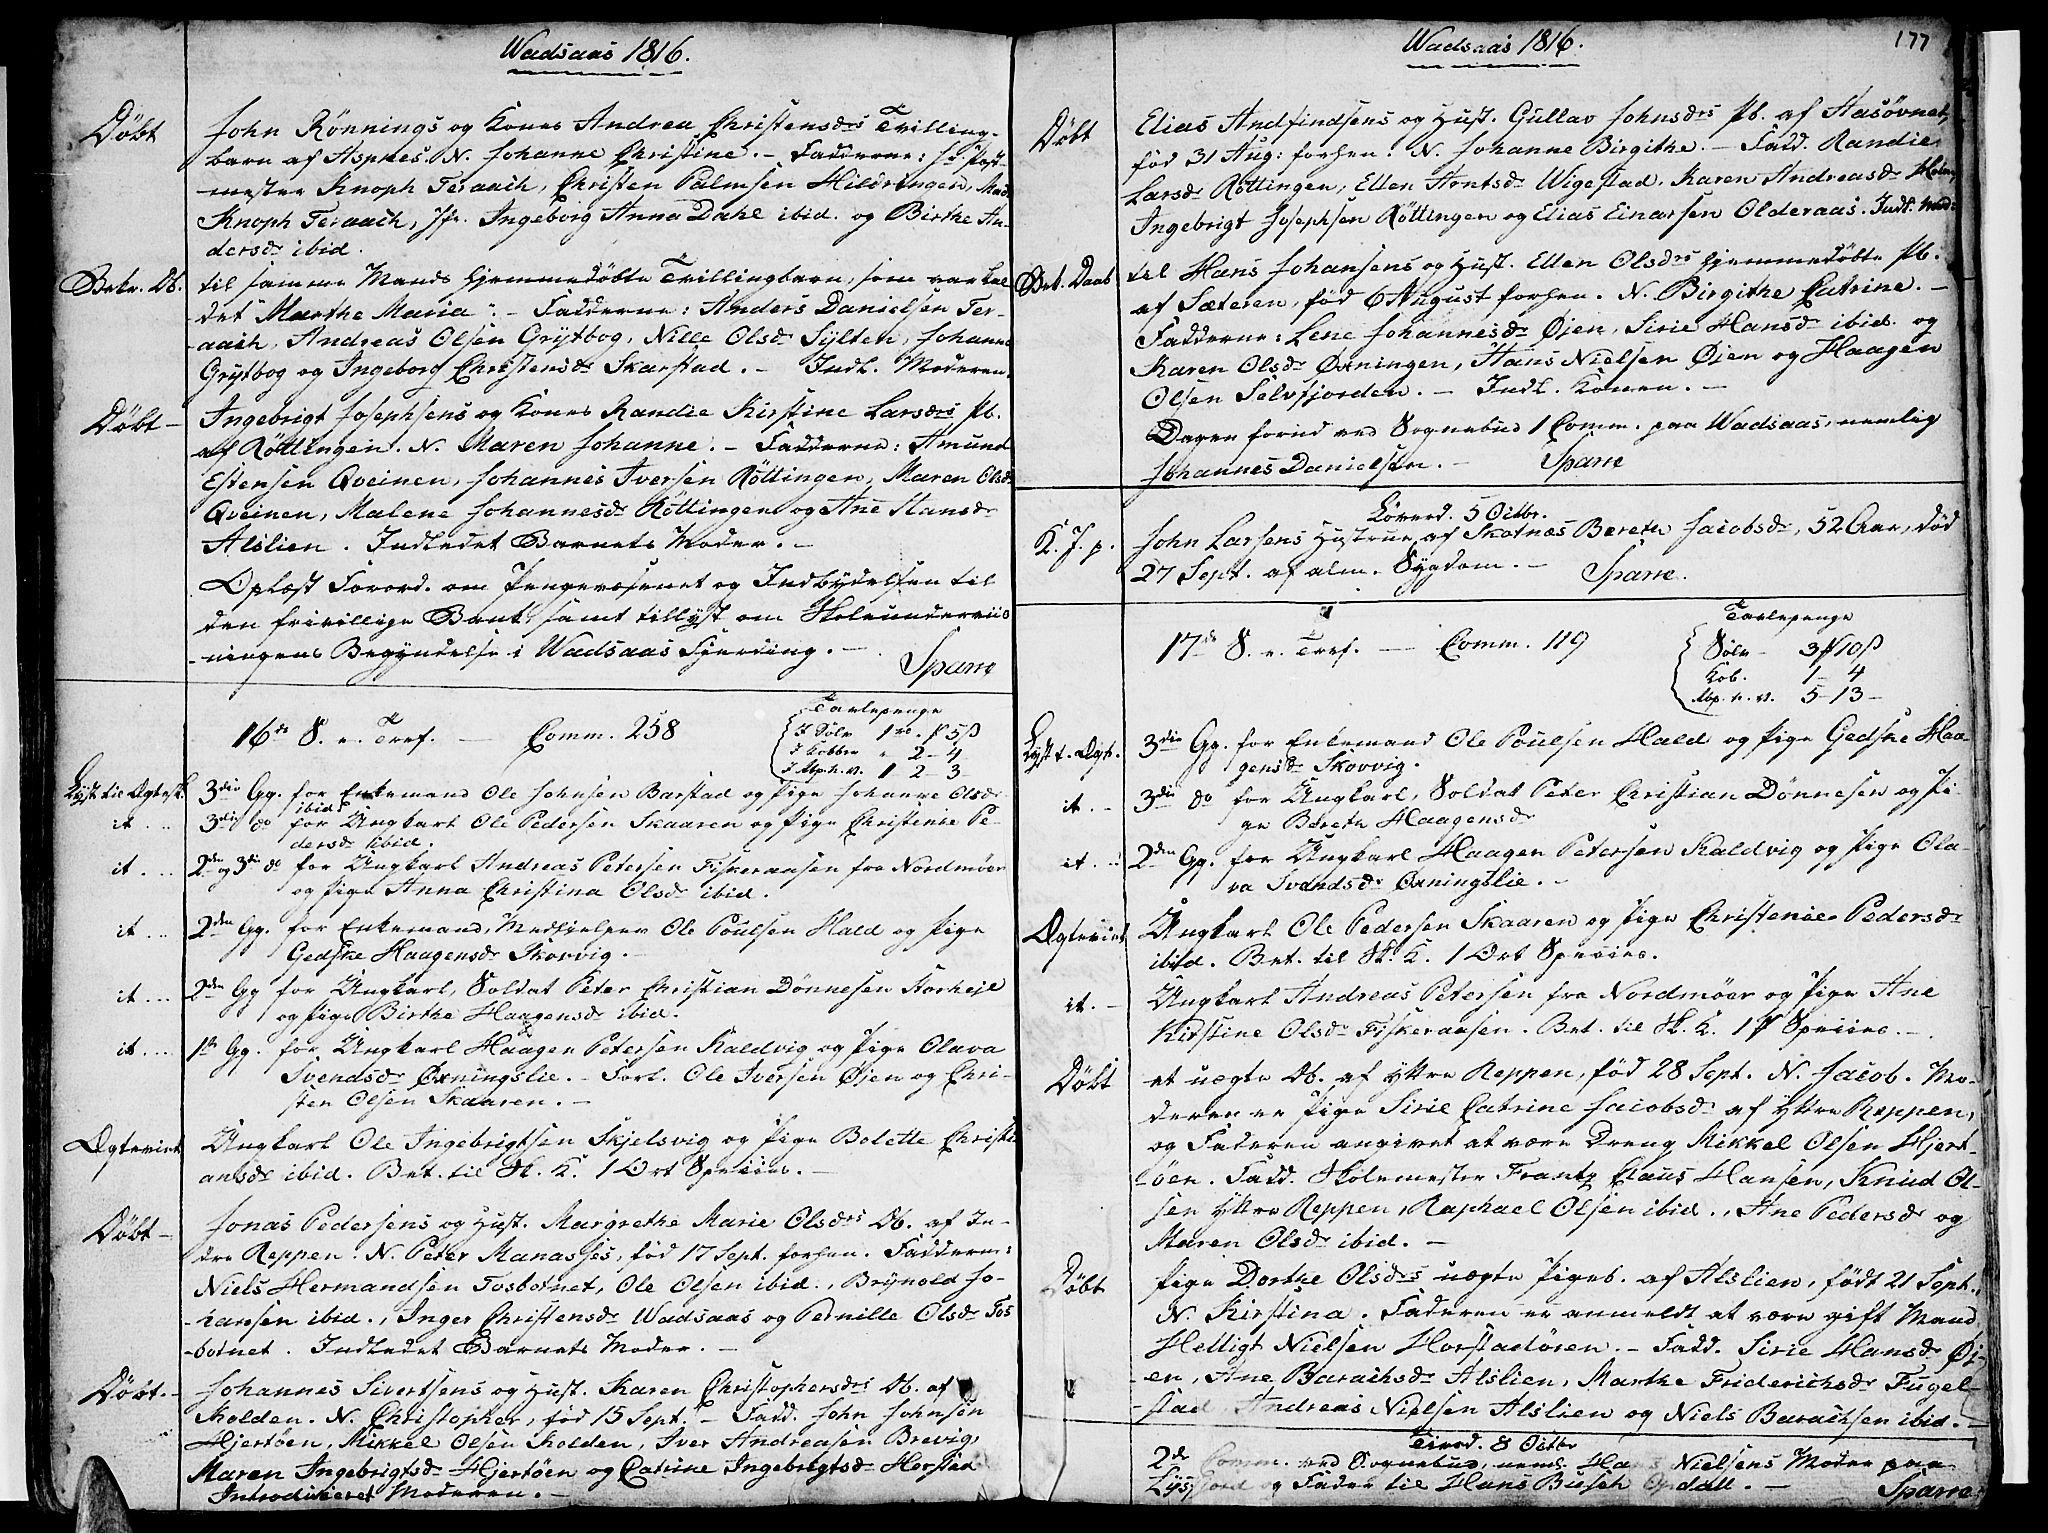 Wadsaas 1816.
Döbt
John Rönnings og Kones Andrea Christensdrs Tvilling-
barn af Aspnes. N. Johanne Christine. – Fadderne: Hr. Post-
mester Knoph Teraach, Christen Palmsen Hildringen, Mad.
Knoph Teraach, Jfr. Ingeborg Anna Dahl ibid. og Birthe An-
dersdr ibid.
Bekr. Db.
til samme Mands hjemmedöbte Tvillingbarn, som var kal-
det Marthe Maria. – Fadderne: Anders Danielsen Ter-
aach, Andreas Olsen Grytbog, Nille Olsdr Sylten, Johanne
Grytbog og Ingeborg Christensdr Skarstad. – Indl. Moderen.
Döbt –
Ingebrigt Josephsens og Kones Randie Kirstine Larsdrs Pb.
af Röttingen. N. Maren Johanne. – Fadderne: Amund
Estensen Qveinen, Johannes Iversen Röttingen, Maren Olsdr
Qveinen, Malene Johannesdr Röttingen og Ane Hansdr
Alslien. Indledet Barnets Moder. –
Oplæst Forord. om Pengevæsenet og Indbydelsen til
den frivillige Bank samt tillyst om Skoleunderviis-
ningens Begyndelse i Wadsaas Fjerding. –
Sparre
16de S. e. Tref. – Comm. 258
Tavlepenge
I Sölv 1 – 5 ß
I Kobber " 2 – 4
1 2 – 3 –
Lyst til Ægtesk. 3die Gg. for Enkemand Ole Johnsen Barstad og Pige Johanne Olsdr
ibid.
it. .. 3die do for Ungkarl Ole Pedersen Skaaren og Pige Christense Pe-
dersdr ibid.
it. .. 2den og 3die do for Ungkarl Andreas Petersen Fiskeraasen fra Nordmöer
og Pige Anna Christina Olsdr ibid.
it ... 2den Gg. for Enkemand, Medhjelper Ole Poulsen Hald og Pige
Gedske Haagensdr Skovvig. –
it ... 2den Gg for Ungkarl, Soldat Peter Christian Dönnesen Storhejl
og Pige Birthe Haagensdr ibid.
it .... 1te Gg. for Ungkarl Haagen Petersen Kaldvig og Pige Olava
Svendsdr Øxningslie. – Forl. Ole Iversen Øjen og Chri-
sten Olsen Skaaren. –
Ægteviet
Ungkarl Ole Ingebrigtsen Skjelsvig og Pige Bolette Christi-
ansdr ibid. Bet. til Sk. K. 1 Ort Species. –
Döbt –
Jonas Pedersens og Hust. Margrethe Marie Olsdrs Db. af In-
dre Reppen. N. Peter Manasses, föd 17 Sept. forhen. Fadderne:
Niels Hermandsen Tosbotnet, Ole Olsen ibid., Brynold Jo-
hansen ibid., Inger Christensdr Wadsaas og Pernille Olsdr Tos-
botnet. Indledet Barnets Moder. –
Döbt. –
Johannes Sivertsens og Hust. Karen Christophersdrs Db. af
Holden. N. Christopher, föd 15 Sept. – Fadd. John Johnsen
Hjertöen, Mikkel Olsen Holden, Iver Andreasen Brevig,
Maren Ingebrigtsdr Hjertöen og Catrine Ingebrigtsdr Horstad
Introduceret Moderen. –
Wadsaas 1816.
177
Döbt
Elias Andfindsens og Hust. Gullav Johnsdrs Pb. af Aasövnet,
föd 31 Aug: forhen. N. Johanne Birgithe. – Fadd. Randie
Larsdr Röttingen, Ellen Arntsdr Wigestad, Karen Andreasdr Holm,
Ingebrigt Josephsen Röttingen og Elias Einarsen Olderaas. Indl. Mod:
Bet. Daab
til Hans Johansens og Hust. Ellen Olsdrs hjemmedöbte Pb.
af Sæteren, föd 6 August forhen. N. Birgithe Catrine. –
Fadderne: Lene Johannesdr Øjen, Sirie Hansdr ibid. og
Karen Olsdr Øxningen, Hans Nielsen Øjen og Haagen
Olsen Selvfjorden. – Indl. Konen. –
Dagen forud ved Sognebud 1 Comm. paa Wadsaas, nemlig
Johannes Danielsen. –
Sparre
Löverd. 5 Octbr.
K. J. p.
John Larsens Hustrue af Skotnæs Bereth Jacobsdr, 52 Aar, död
27 Sept. af alm. Sygdom. –
Sparre.
17de S. e. Tref. – Comm. 119
Tavlepenge
Sölv – 3 10 ß
Kob. 1 – 4
5 – 13 –
Lyst t. Ægt. 3die Gg. for Enkemand Ole Poulsen Hald og Pige Gedske Haa-
gensdr Skovvig.
it. – 3die do for Ungkarl, Soldat Peter Christian Dönnesen og Pi-
ge Bereth Haagensdr
it. .. 2den Gg. for Ungkarl Haagen Petersen Kaldvig og Pige Ola-
va Svendsdr Øxningslie. –
Ægteviet
Ungkarl Ole Pedersen Skaaren og Pige Christense Pedersdr
ibid. Bet. til Sk. K. 1 Ort Species.
it. –
Ungkarl Andreas Petersen fra Nordmöer og Pige Ane
Kirstine Olsdr Fiskeraasen. Bet. til Sk. K. 1 Species. –
Döbt
et uægte Db. af Yttre Reppen, föd 28 Sept. N. Jacob. Mo-
deren er Pige Sirie Catrine Jacobsdr af Yttre Reppen,
og Faderen angivet at være Dreng Mikkel Olsen Hjert-
öen. Fadd. Skolemester Frantz Claus Hansen, Knud Ol-
sen Yttre Reppen, Raphael Olsen ibid., Ane Pedersdr og
Maren Olsdr ibid. –
Döbt
Pige Dorthe Olsdrs uægte Pigeb. af Alslien, födt 21 Sept.,
N. Kirstina. Faderen er anmeldt at være gift Mand
Helligt Nielsen Horstadören. – Fadd. Sirie Hansdr Øj-
en, Ane Barachsdr Alslien, Marthe Friderichsdr Fugel-
stad, Andreas Nielsen Alslien og Niels Barachsen ibid. –
Tirsd. 8 Octbr
2de Comm. ved Sognebud, neml. Hans Nielsens Moder paa
Lysfjord og Fader til Hans Busch Opdall. –
Sparre